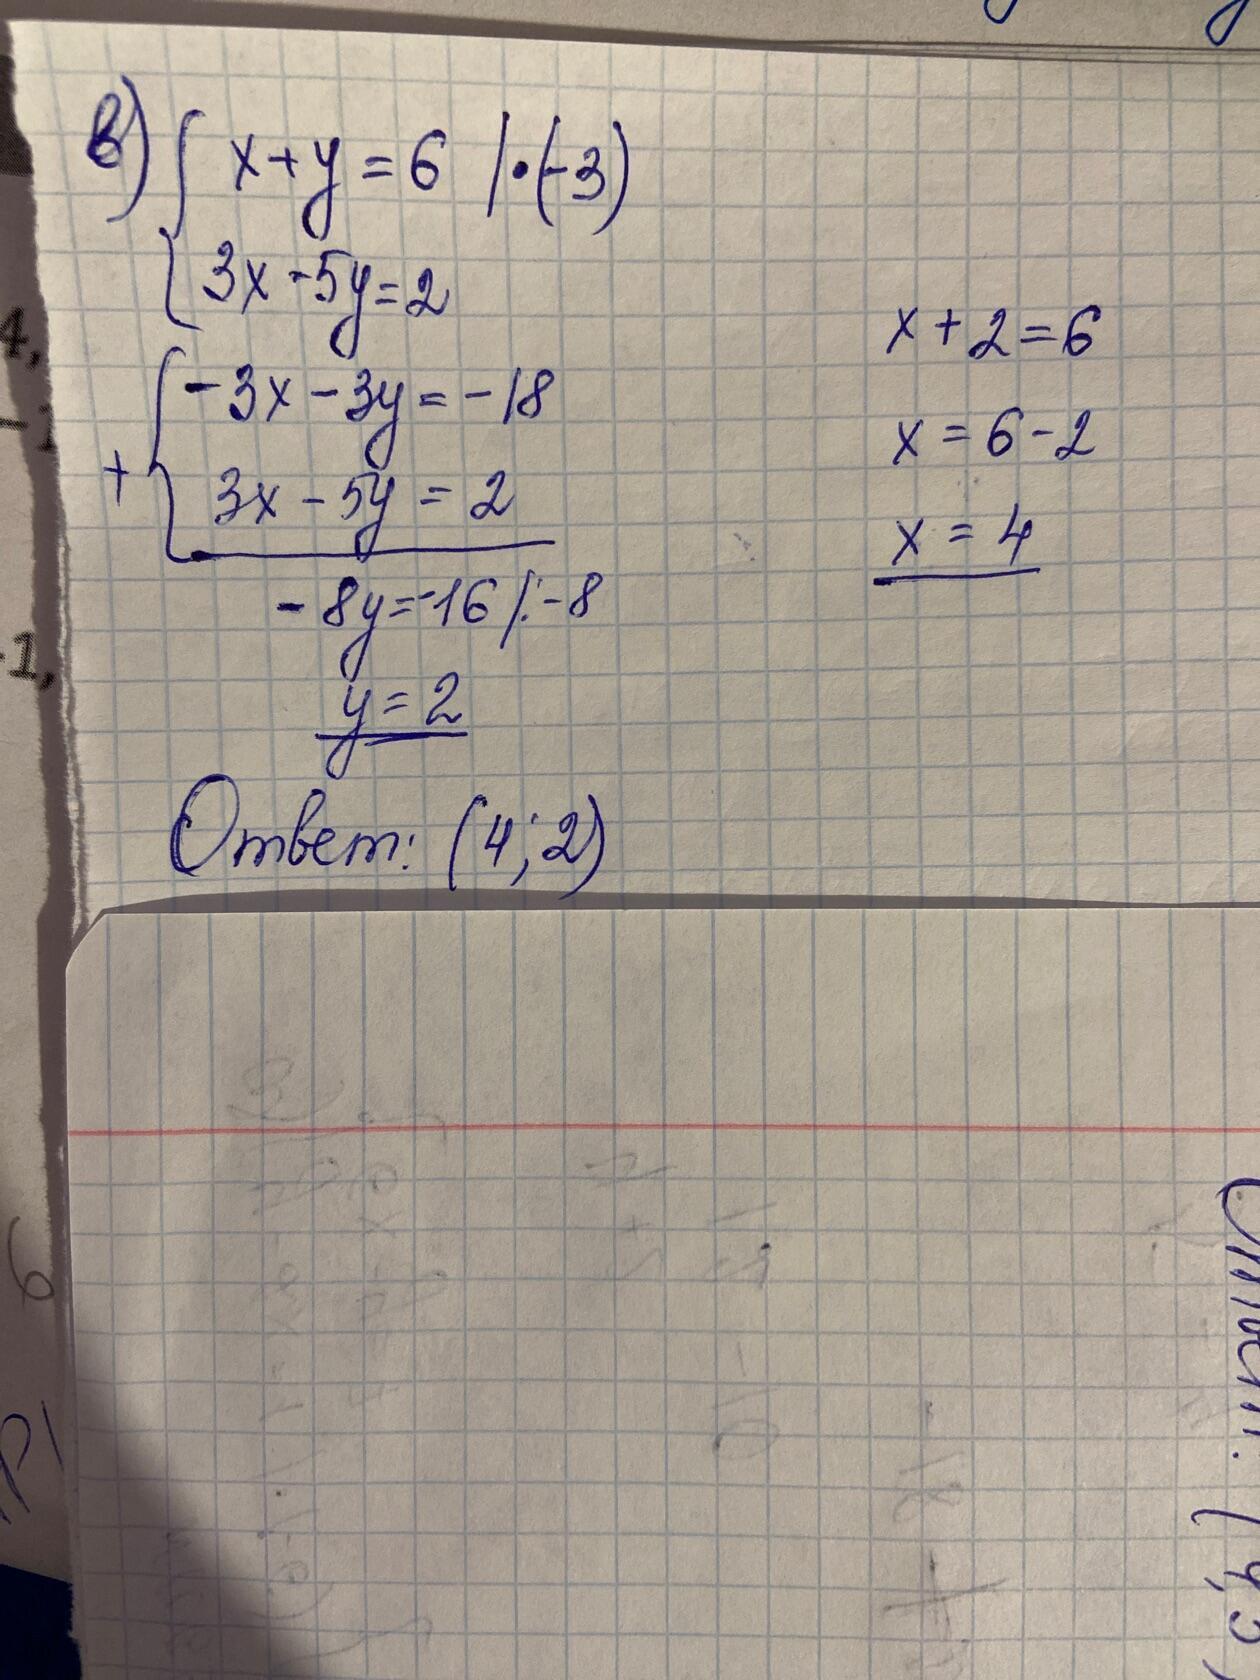 в) { x+y=6 |·(-3)
3x-5y=2
+ { -3x-3y=-18
3x-5y=2
-8y=-16 /:-8
y=2
x+2=6
x=6-2
x=4
Ответ: (4;2)
4,
-1,
6
Ответ: (